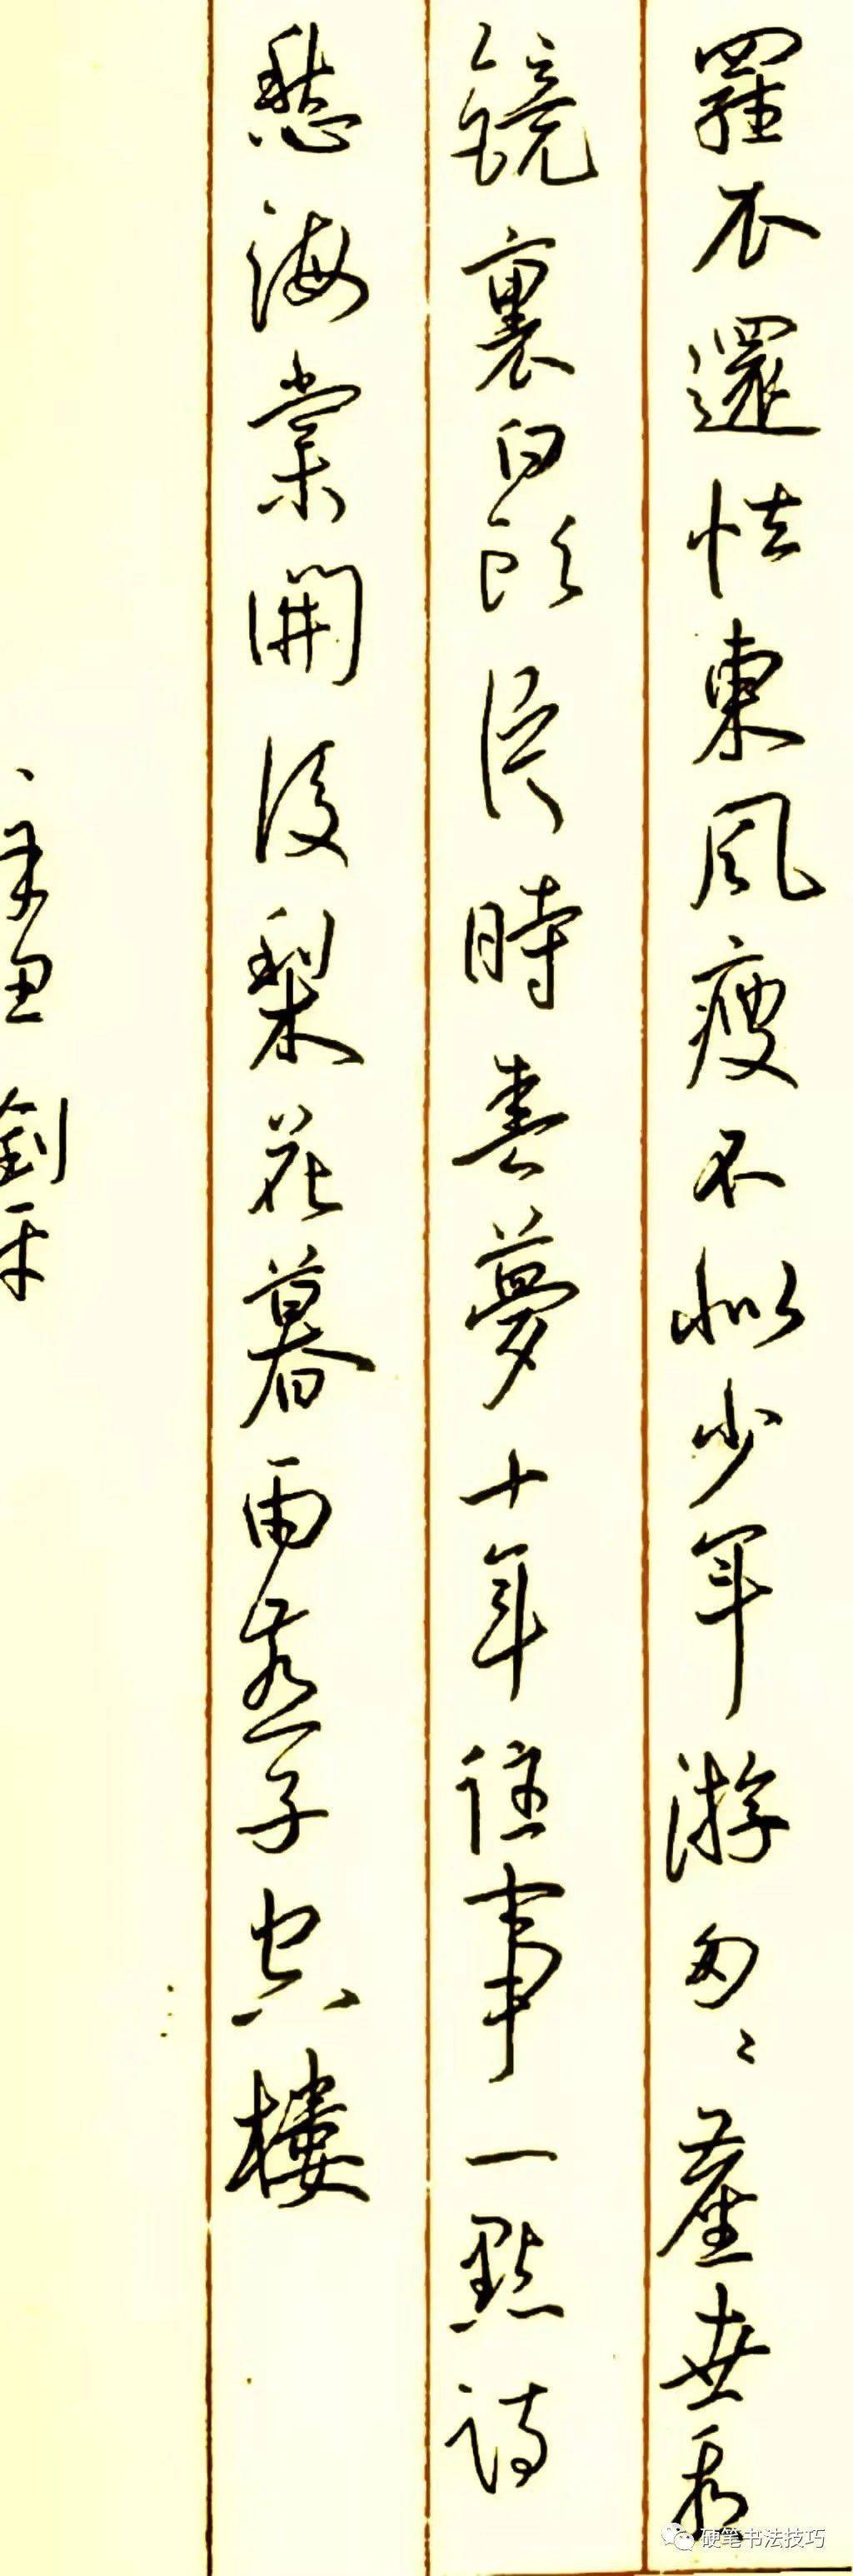 羅衣還怯東風瘦不似少年游匆〻塵世看
鏡裏白頭片時春夢十年往事一點詩
愁海棠開後梨花暮雨燕子空樓
硬笔书法技巧